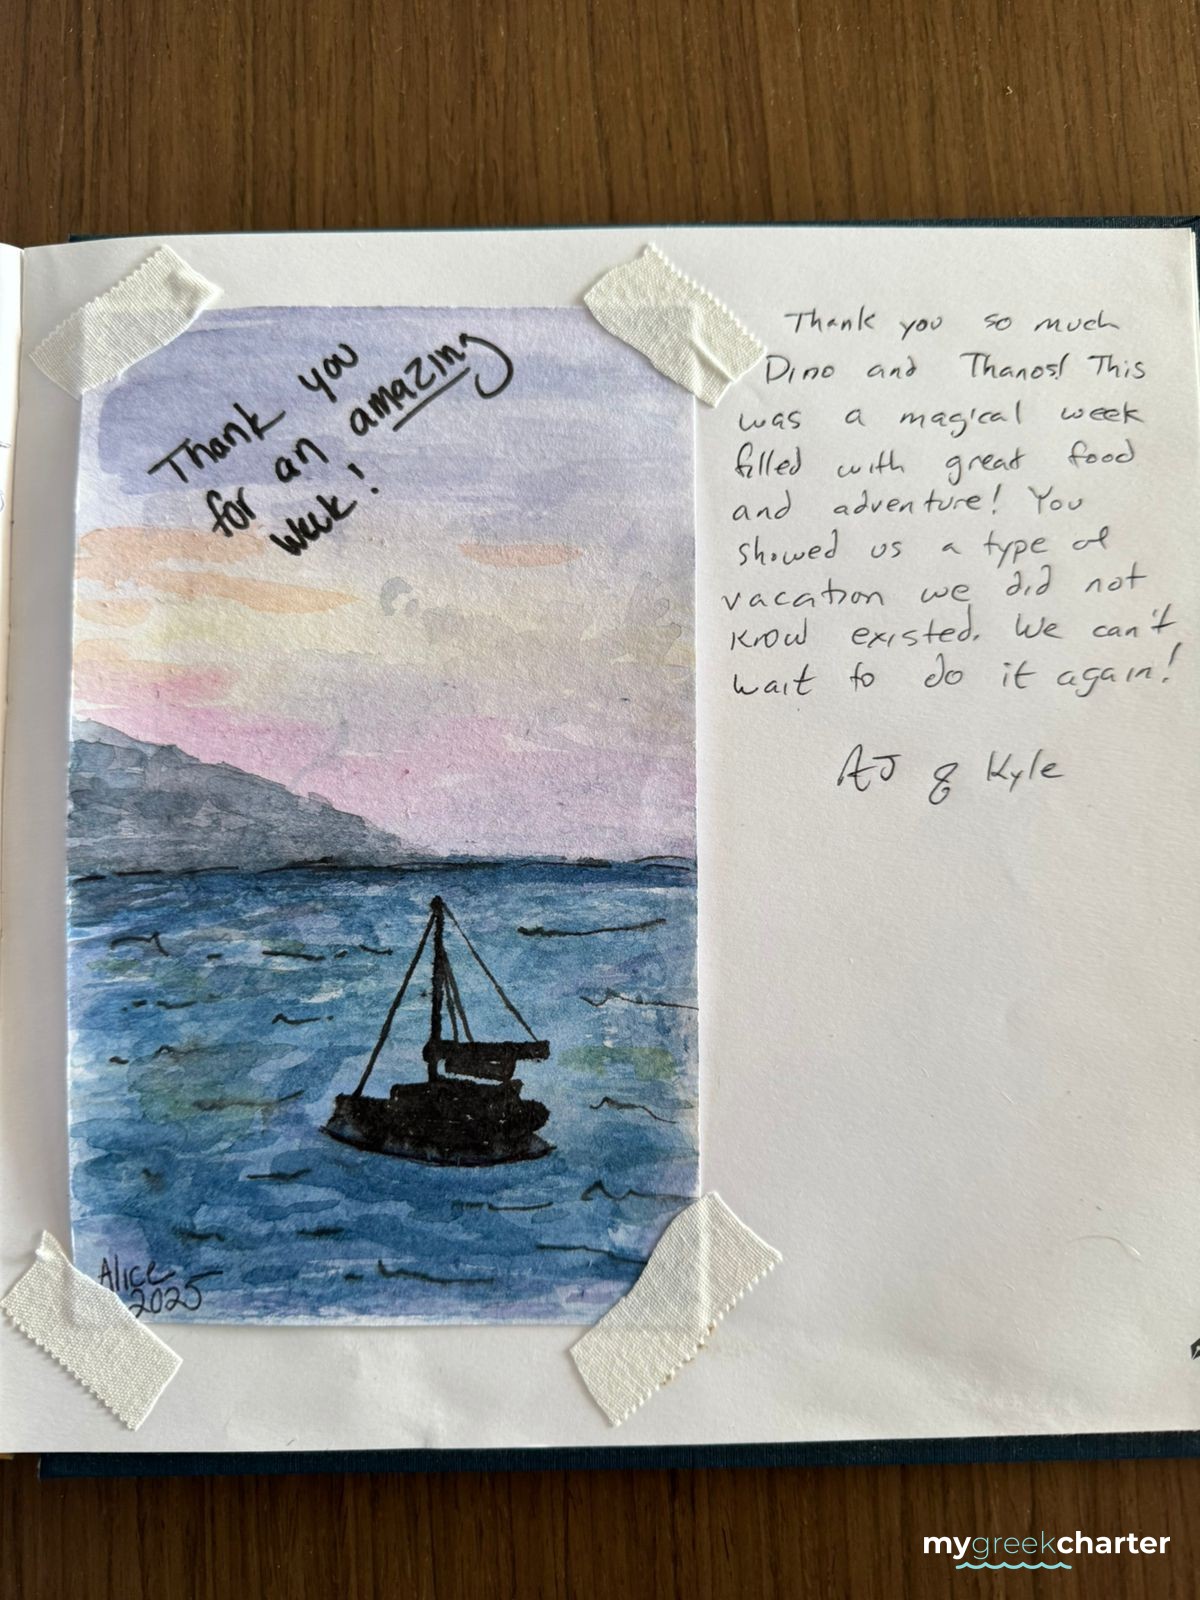 Thank you
for an amazing
week!
Alice
2025
Thank you so much
Dino and Thanos! This
was a magical week
filled with great food
and adventure! You
showed us a type of
vacation we did not
know existed. We can't
wait to do it again!
AJ & Kyle
mygreekcharter